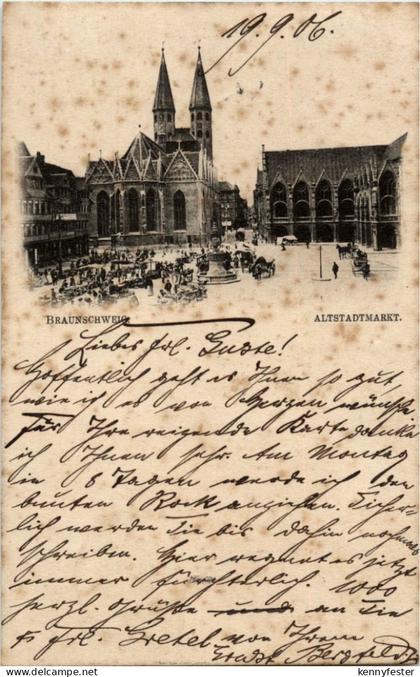 19.9.06.
BRAUNSCHWEIG.
ALTSTADTMARKT.
Liebes Frl. Guste!
Hoffentlich geht es Ihnen so gut,
wie ich es von Herzen wünsche
Für Ihre reizende Karte danke
ich Ihnen sehr. Am Montag
in 8 Tagen werde ich den
bunten Rock anziehen. Sicher-
lich werden Sie bis dahin nochmals
schreiben. Hier regnet es jetzt
immer fürchterlich. 1000
herzl. Grüße an Sie
Frl. Gretel von Ihrem
Ernst Bergfeld
kennyfester